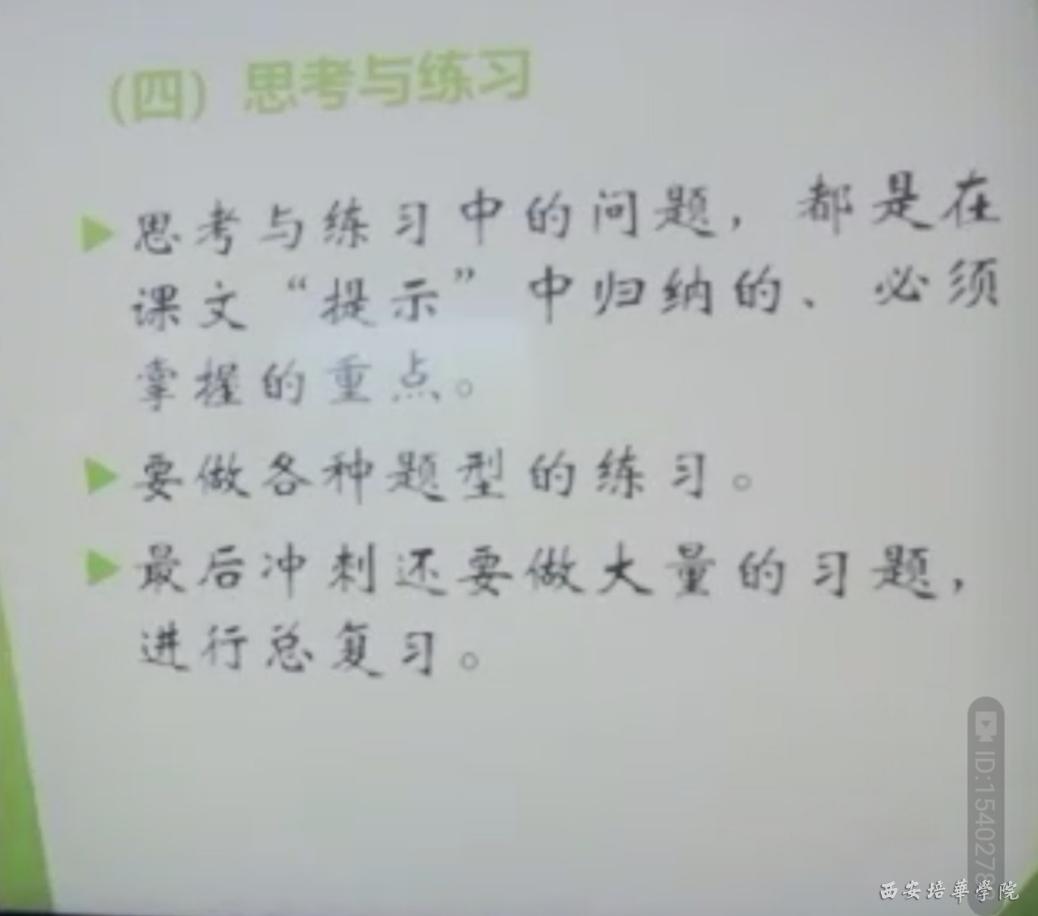 （四）思考与练习
思考与练习中的问题，都是在
课文“提示”中归纳的、必须
掌握的重点。
要做各种题型的练习。
最后冲刺还要做大量的习题，
进行总复习。
ID:1540278
西安培華学院